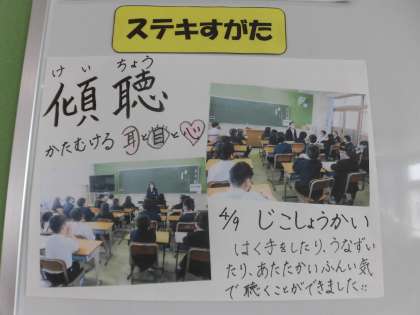 ステキすがた
けい ちょう
傾聴
かたむける 耳と目と心
4/9 じこしょうかい
はく手をしたり、うなずい
たり、あたたかいふんい気
で聴くことができました!!